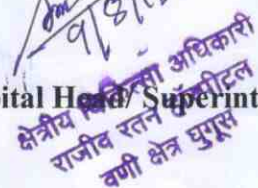 9/8/
ital Head/ Superint
क्षेत्रीय चिकित्सा अधिकारी
राजीव रतन हॉस्पीटल
वणी क्षेत्र घुगूस